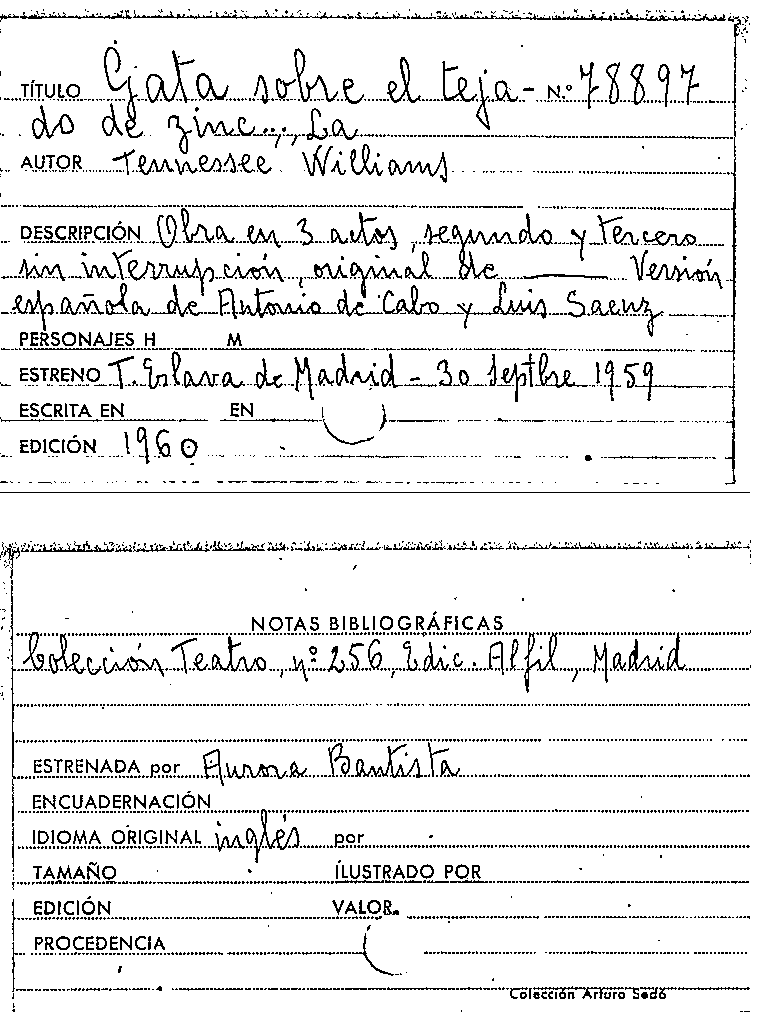 TÍTULO Gata sobre el teja- N.º 78897
do de zinc..., La
AUTOR Tennessee Williams
DESCRIPCIÓN Obra en 3 actos, segundo y tercero
sin interrupción, original de ——— Versión
española de Antonio de Cabo y Luis Saenz
PERSONAJES H M
ESTRENO T. Eslava de Madrid - 30 Septbre 1959
ESCRITA EN EN
EDICIÓN 1960
NOTAS BIBLIOGRÁFICAS
Colección Teatro, nº 256, Edic. Alfil, Madrid
ESTRENADA por Aurora Bautista
ENCUADERNACIÓN
IDIOMA ORIGINAL inglés por
TAMAÑO ILUSTRADO POR
EDICIÓN VALOR.
PROCEDENCIA
Colección Arturo Sedó